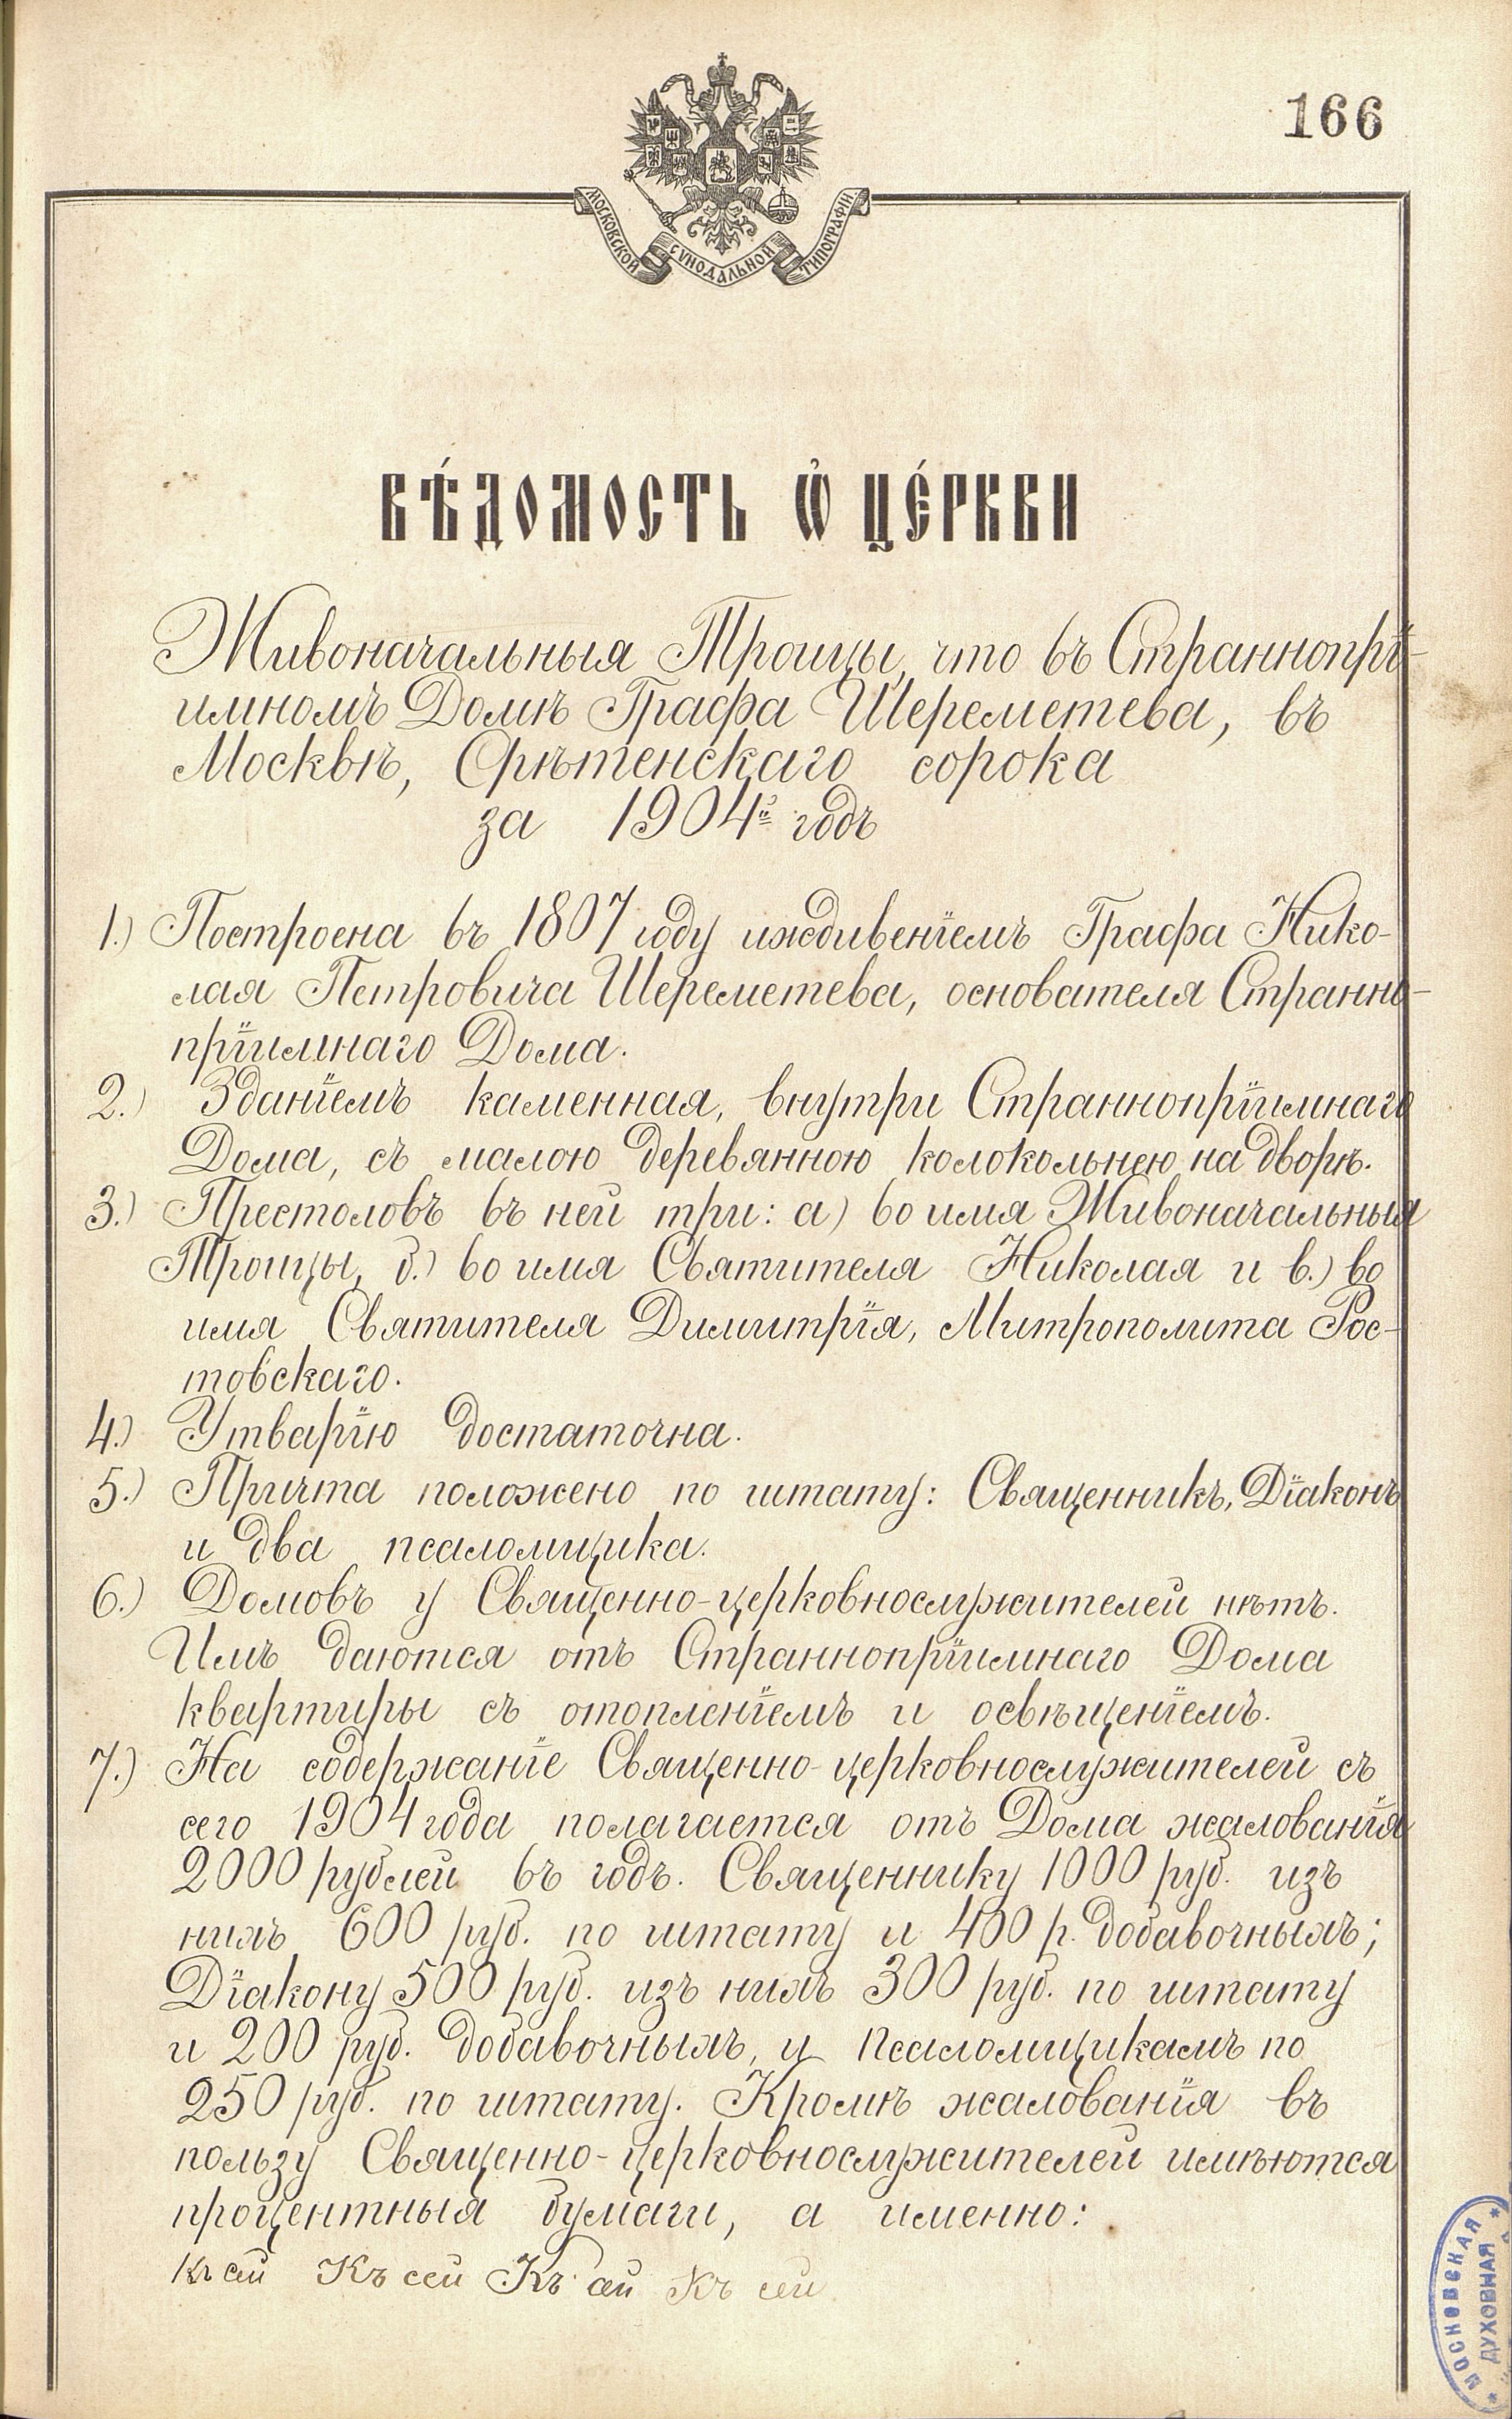 166
МОСКОВСКОЙ СѴНОДАЛЬНОЙ ТИПОГРАФІИ
ВѢ́ДОМОСТЬ Ѡ҆ ЦЕ́РКВИ
Живоначальныя Троицы, что въ Страннопрі-
имномъ Домѣ Графа Шереметева, въ
Москвѣ, Срѣтенскаго сорока
за 1904й годъ
1.) Построена въ 1807 году иждивеніемъ Графа Нико-
лая Петровича Шереметева, основателя Странно-
пріимнаго Дома.
2.) Зданіемъ каменная, внутри Страннопріимнаго
Дома, съ малою деревянною колокольнею на дворѣ.
3.) Престоловъ въ ней три: а) во имя Живоначальныя
Троицы, б.) во имя Святителя Николая и в.) во
имя Святителя Димитрія, Митрополита Рос-
товскаго.
4.) Утварію достаточна.
5.) Причта положено по штату: Священникъ, Діаконъ
и два псаломщика.
6.) Домовъ у Священно-церковнослужителей нѣтъ.
Имъ даются отъ Страннопріимнаго Дома
квартиры съ отопленіемъ и освѣщеніемъ.
7.) На содержаніе Священно-церковнослужителей съ
сего 1904 года полагается отъ Дома жалованія
2000 рублей въ годъ. Священнику 1000 руб. изъ
нихъ 600 руб. по штату и 400 р. добавочныхъ;
Діакону 500 руб. изъ нихъ 300 руб. по штату
и 200 руб. добавочныхъ, и псаломщикамъ по
250 руб. по штату. Кромѣ жалованія въ
пользу Священно-церковнослужителей имѣются
процентныя бумаги, а именно:
Къ сей Къ сей Къ сей Къ сей
МОСКОВСКАЯ
ДУХОВНАЯ